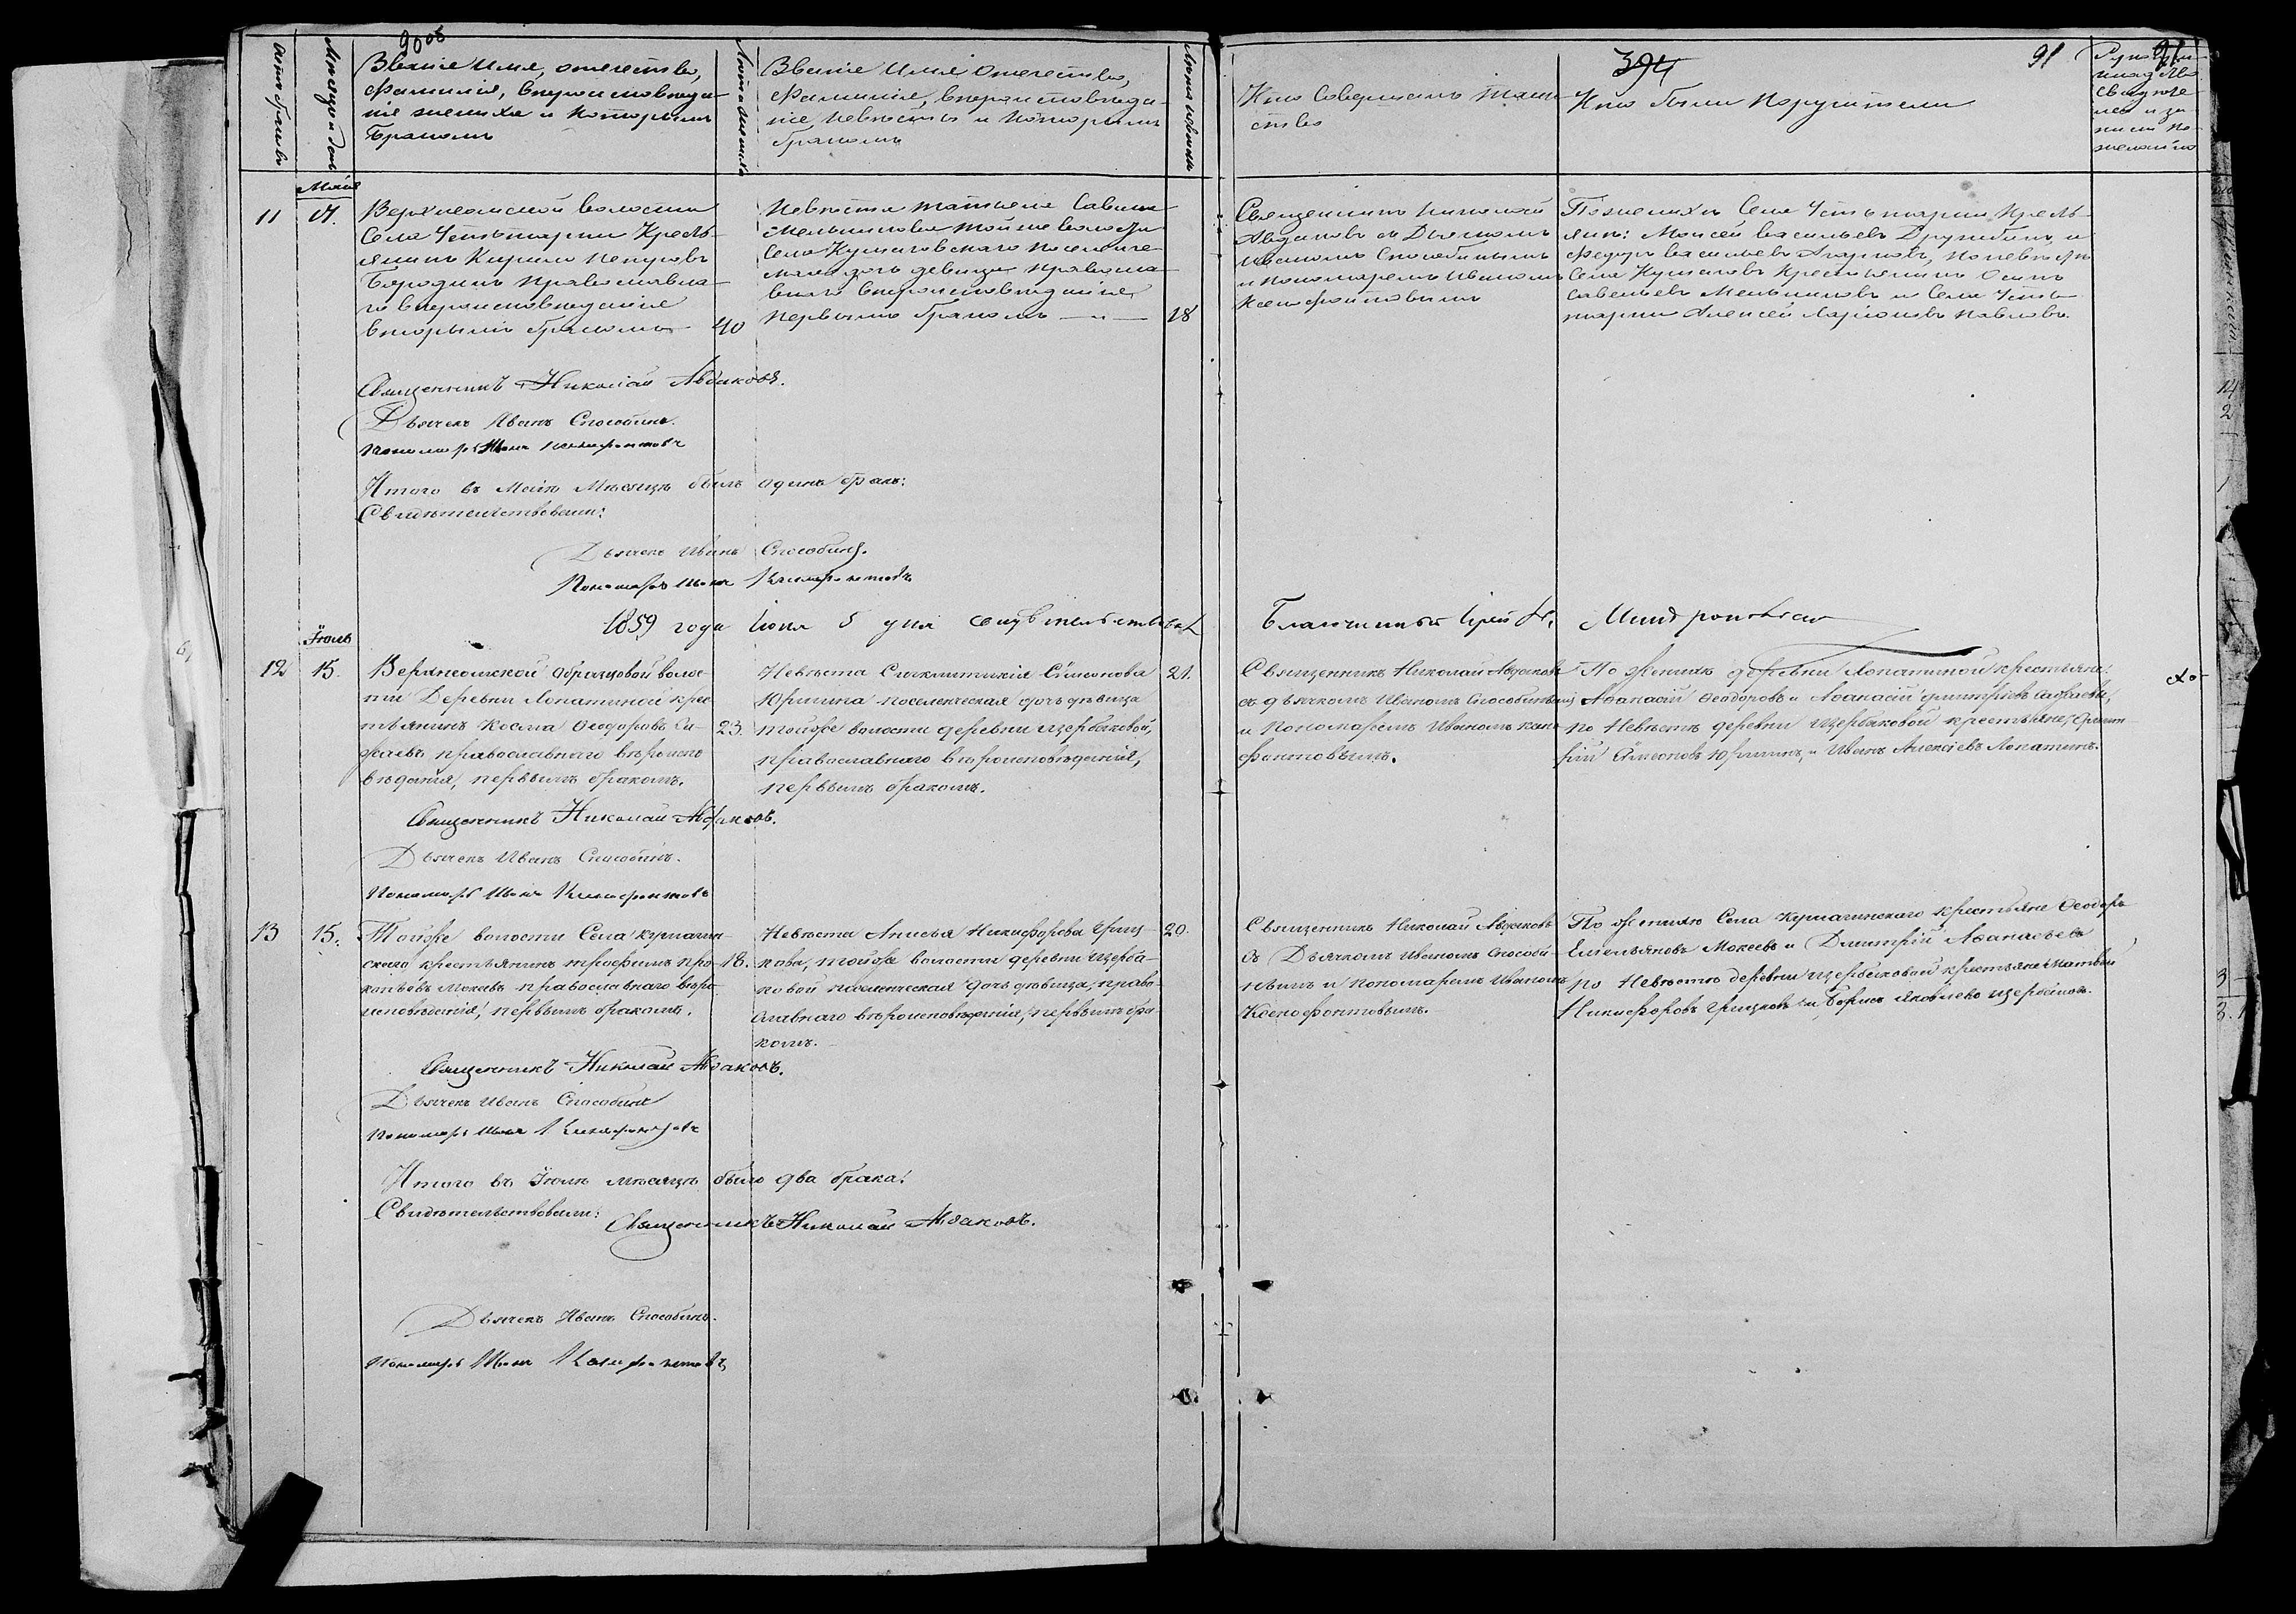 90 об
394
91
91
Счетъ браковъ
Мѣсяцъ и день
Званіе имя, отечество,
фамилія, вѣроисповѣда-
ніе жениха и которымъ
бракомъ
Лѣта жениха
Званіе имя отечество,
фамилія, вѣроисповѣда-
ніе невѣсты и которымъ
бракомъ
Лѣта невѣсты
Кто совершалъ таин-
ство
Кто были поручители
свидѣте-
лей
по
желанію
Майя
11
Села Устьтарки кресть-
янинъ Кирило
Бородинъ православна-
го вѣроисповѣданія
вторымъ бракомъ
40
Невѣста Татьяна Савина
Мельникова той же волости
села Кумаговскаго поселенче-
ская дочь девица православ-
наго вѣроисповѣданія
первымъ бракомъ
18
Священникъ Николай
Авдаковъ съ Дьячкомъ
Иваномъ Способинымъ
и пономаремъ Иваномъ
Ксенофонтовымъ
По женихѣ села Устьтарки кресть-
яне: Моисей Васильевъ Дружбинъ и
Федоръ Васильевъ по невѣстѣ
села крестьянинъ Осипъ
Савельевъ Мельниковъ и села Усть-
тарки Алексей Ларіоновъ Павловъ.
Священникъ Николай Авдаковъ.
Дьячекъ Иванъ Способинъ.
Пономарь Иванъ Ксенофонтовъ
Итого въ Маѣ Мѣсяцѣ былъ одинъ бракъ:
Свидѣтельствовали:
Дьячекъ Иванъ Способинъ.
Пономарь Иванъ Ксенофонтовъ
1859 года Іюня 5 дня свидѣтельствовалъ
Благочинный Іерей
Іюль
12
15.
Образцовой волос-
ти Деревни Лопатиной крес-
тьянинъ Косма Ѳеодоровъ Са-
фаевъ православнаго вѣроиспо-
вѣданія, первымъ бракомъ.
23.
Невѣста Сѵнклитикія Сѵмеонова
Юркина поселенческая дочь дѣвица
той же волости деревни Щербаковой,
православнаго вѣроисповѣданія,
первымъ бракомъ.
21.
Священникъ Николай Авдаковъ
съ дьячкомъ Иваномъ Способинымъ
и Пономаремъ Иваномъ Ксено-
фонтовымъ.
По женихѣ деревни Лопатиной крестьяне:
Аѳанасій Ѳеодоровъ и Аѳанасій Димитріевъ Сафаевы,
по невѣстѣ деревни Щербаковой крестьяне, Димит-
рій Сѵмеоновъ Юркинъ, и Иванъ Алексѣевъ Лопатинъ.
Священникъ Николай Авдаковъ.
Дьячекъ Иванъ Способинъ.
Пономарь Иванъ Ксенофонтовъ
13
15.
Той же волости Села Кушагин-
скаго крестьянинъ Трофимъ Про-
копьевъ Мокѣевъ православнаго вѣро-
исповѣданія, первымъ бракомъ.
18.
Невѣста Анисья Никифорова Гриц-
кова, той же волости деревни Щерба-
ковой поселенческая дочь дѣвица, право-
славнаго вѣроисповѣданія, первымъ бра-
комъ.
20.
Священникъ Николай Авдаковъ
съ Дьячкомъ Иваномъ Способи-
нымъ и Пономаремъ Иваномъ
Ксенофонтовымъ.
По женихѣ Села Кушагинскаго крестьяне Ѳеодоръ
Емельяновъ Мокеевъ и Димитрій Аѳанасьевъ
по Невѣстѣ деревни Щербаковой крестьяне Матвѣй
Никифоровъ Грицковъ и Борисъ Яковлевъ Щербаковъ.
Священникъ Николай Авдаковъ.
Дьячекъ Иванъ Способинъ
Пономарь Иванъ Ксенофонтовъ
Итого въ Іюлѣ мѣсяцѣ было два брака:
Свидѣтельствовали:
Священникъ Николай Авдаковъ.
Дьячекъ Иванъ Способинъ.
Пономарь Иванъ Ксенофонтовъ